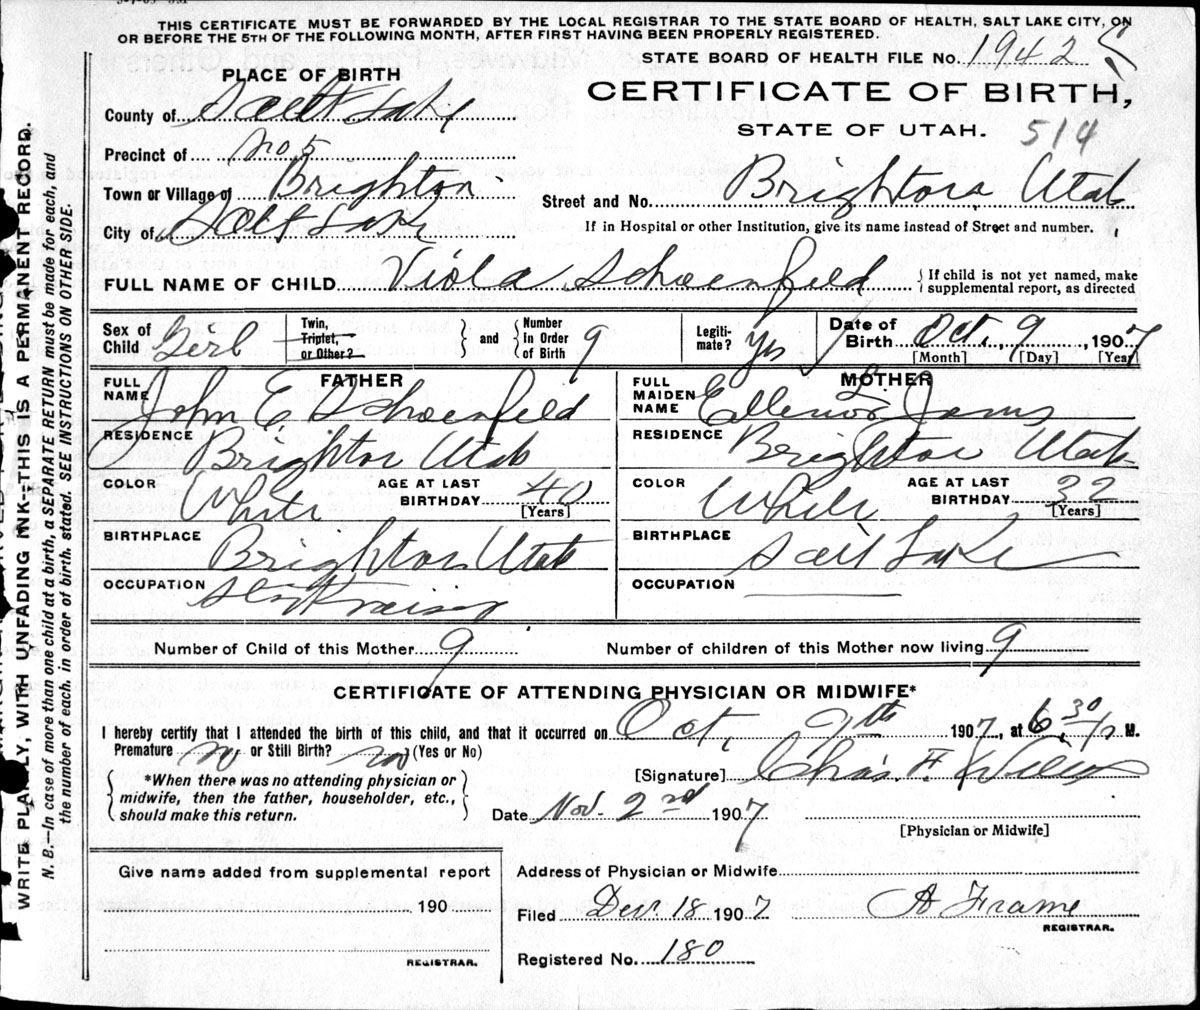 THIS CERTIFICATE MUST BE FORWARDED BY THE LOCAL REGISTRAR TO THE STATE BOARD OF HEALTH, SALT LAKE CITY, ON
OR BEFORE THE 5TH OF THE FOLLOWING MONTH, AFTER FIRST HAVING BEEN PROPERLY REGISTERED.
STATE BOARD OF HEALTH FILE No. 1942
PLACE OF BIRTH
CERTIFICATE OF BIRTH,
County of Salt Lake
STATE OF UTAH. 514
Precinct of No. 5
Town or Village of Brighton
Street and No. Brighton Utah
City of Salt Lake
If in Hospital or other Institution, give its name instead of Street and number.
FULL NAME OF CHILD Viola Schoenfeld { If child is not yet named, make
supplemental report, as directed
Sex of Child Girl
Twin, Triplet, or Other? } and { Number In Order of Birth 9
Legiti- mate? Yes
Date of Birth Oct. 9, 1907
[Month] [Day] [Year]
FATHER
FULL NAME John E Schoenfeld
RESIDENCE Brighton Utah
COLOR White AGE AT LAST BIRTHDAY 40 [Years]
BIRTHPLACE Brighton Utah
OCCUPATION
MOTHER
FULL MAIDEN NAME
RESIDENCE Brighton Utah
COLOR White AGE AT LAST BIRTHDAY 32 [Years]
BIRTHPLACE Salt Lake
OCCUPATION
Number of Child of this Mother 9 Number of children of this Mother now living 9
CERTIFICATE OF ATTENDING PHYSICIAN OR MIDWIFE*
I hereby certify that I attended the birth of this child, and that it occurred on Oct, 9th 1907, at 6 30 P M.
Premature no or Still Birth? no (Yes or No)
[Signature] Chas. F.
*When there was no attending physician or
midwife, then the father, householder, etc.,
should make this return.
Date Nov. 2nd 1907
[Physician or Midwife]
Give name added from supplemental report
190
REGISTRAR.
Address of Physician or Midwife
Filed Dec. 18 1907 A Frame
REGISTRAR.
Registered No. 180
WRITE PLAINLY, WITH UNFADING INK—THIS IS A PERMANENT RECORD.
N. B.—In case of more than one child at a birth, a SEPARATE RETURN must be made for each, and
the number of each, in order of birth, stated. SEE INSTRUCTIONS ON OTHER SIDE.